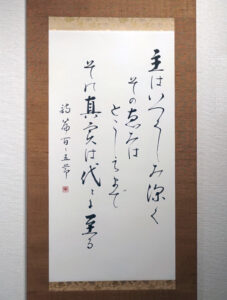 主はいつくしみ深く
その恵みは
とこしえまで
その真実は代々に至る
詩篇百